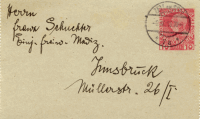 Herrn
Franz Schuchter
Einj. freiw. Mediz.
Innsbruck
Müllerstr. 26/I